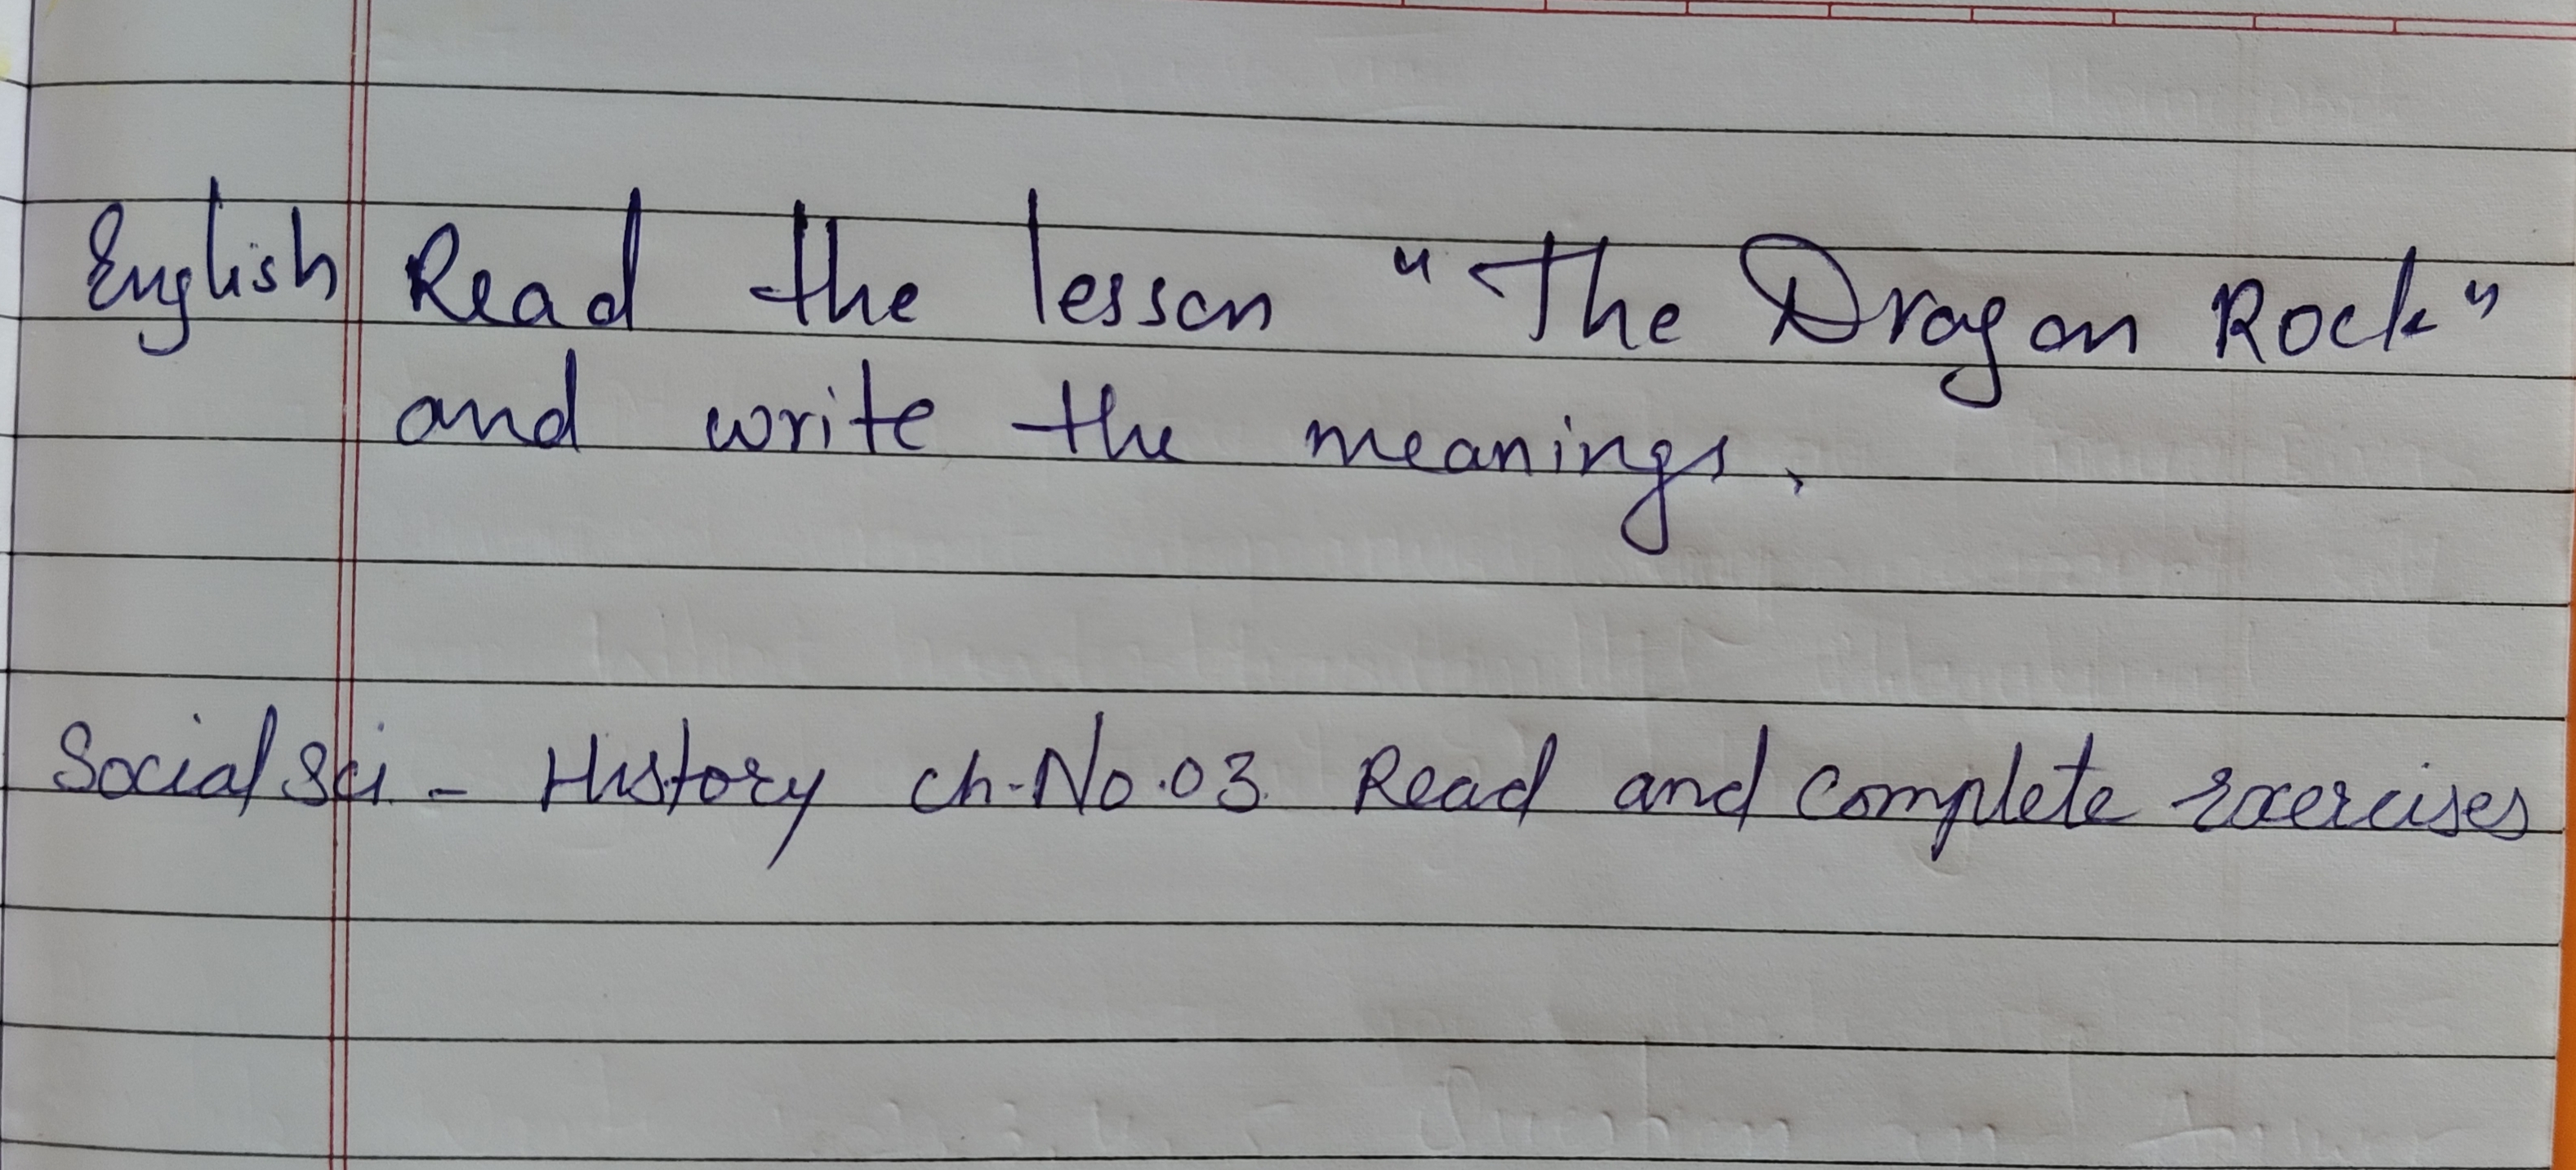 English Read the lesson "The Dragon Rock"
and write the meanings.
Social Sci - History ch-No.03 Read and complete exercises